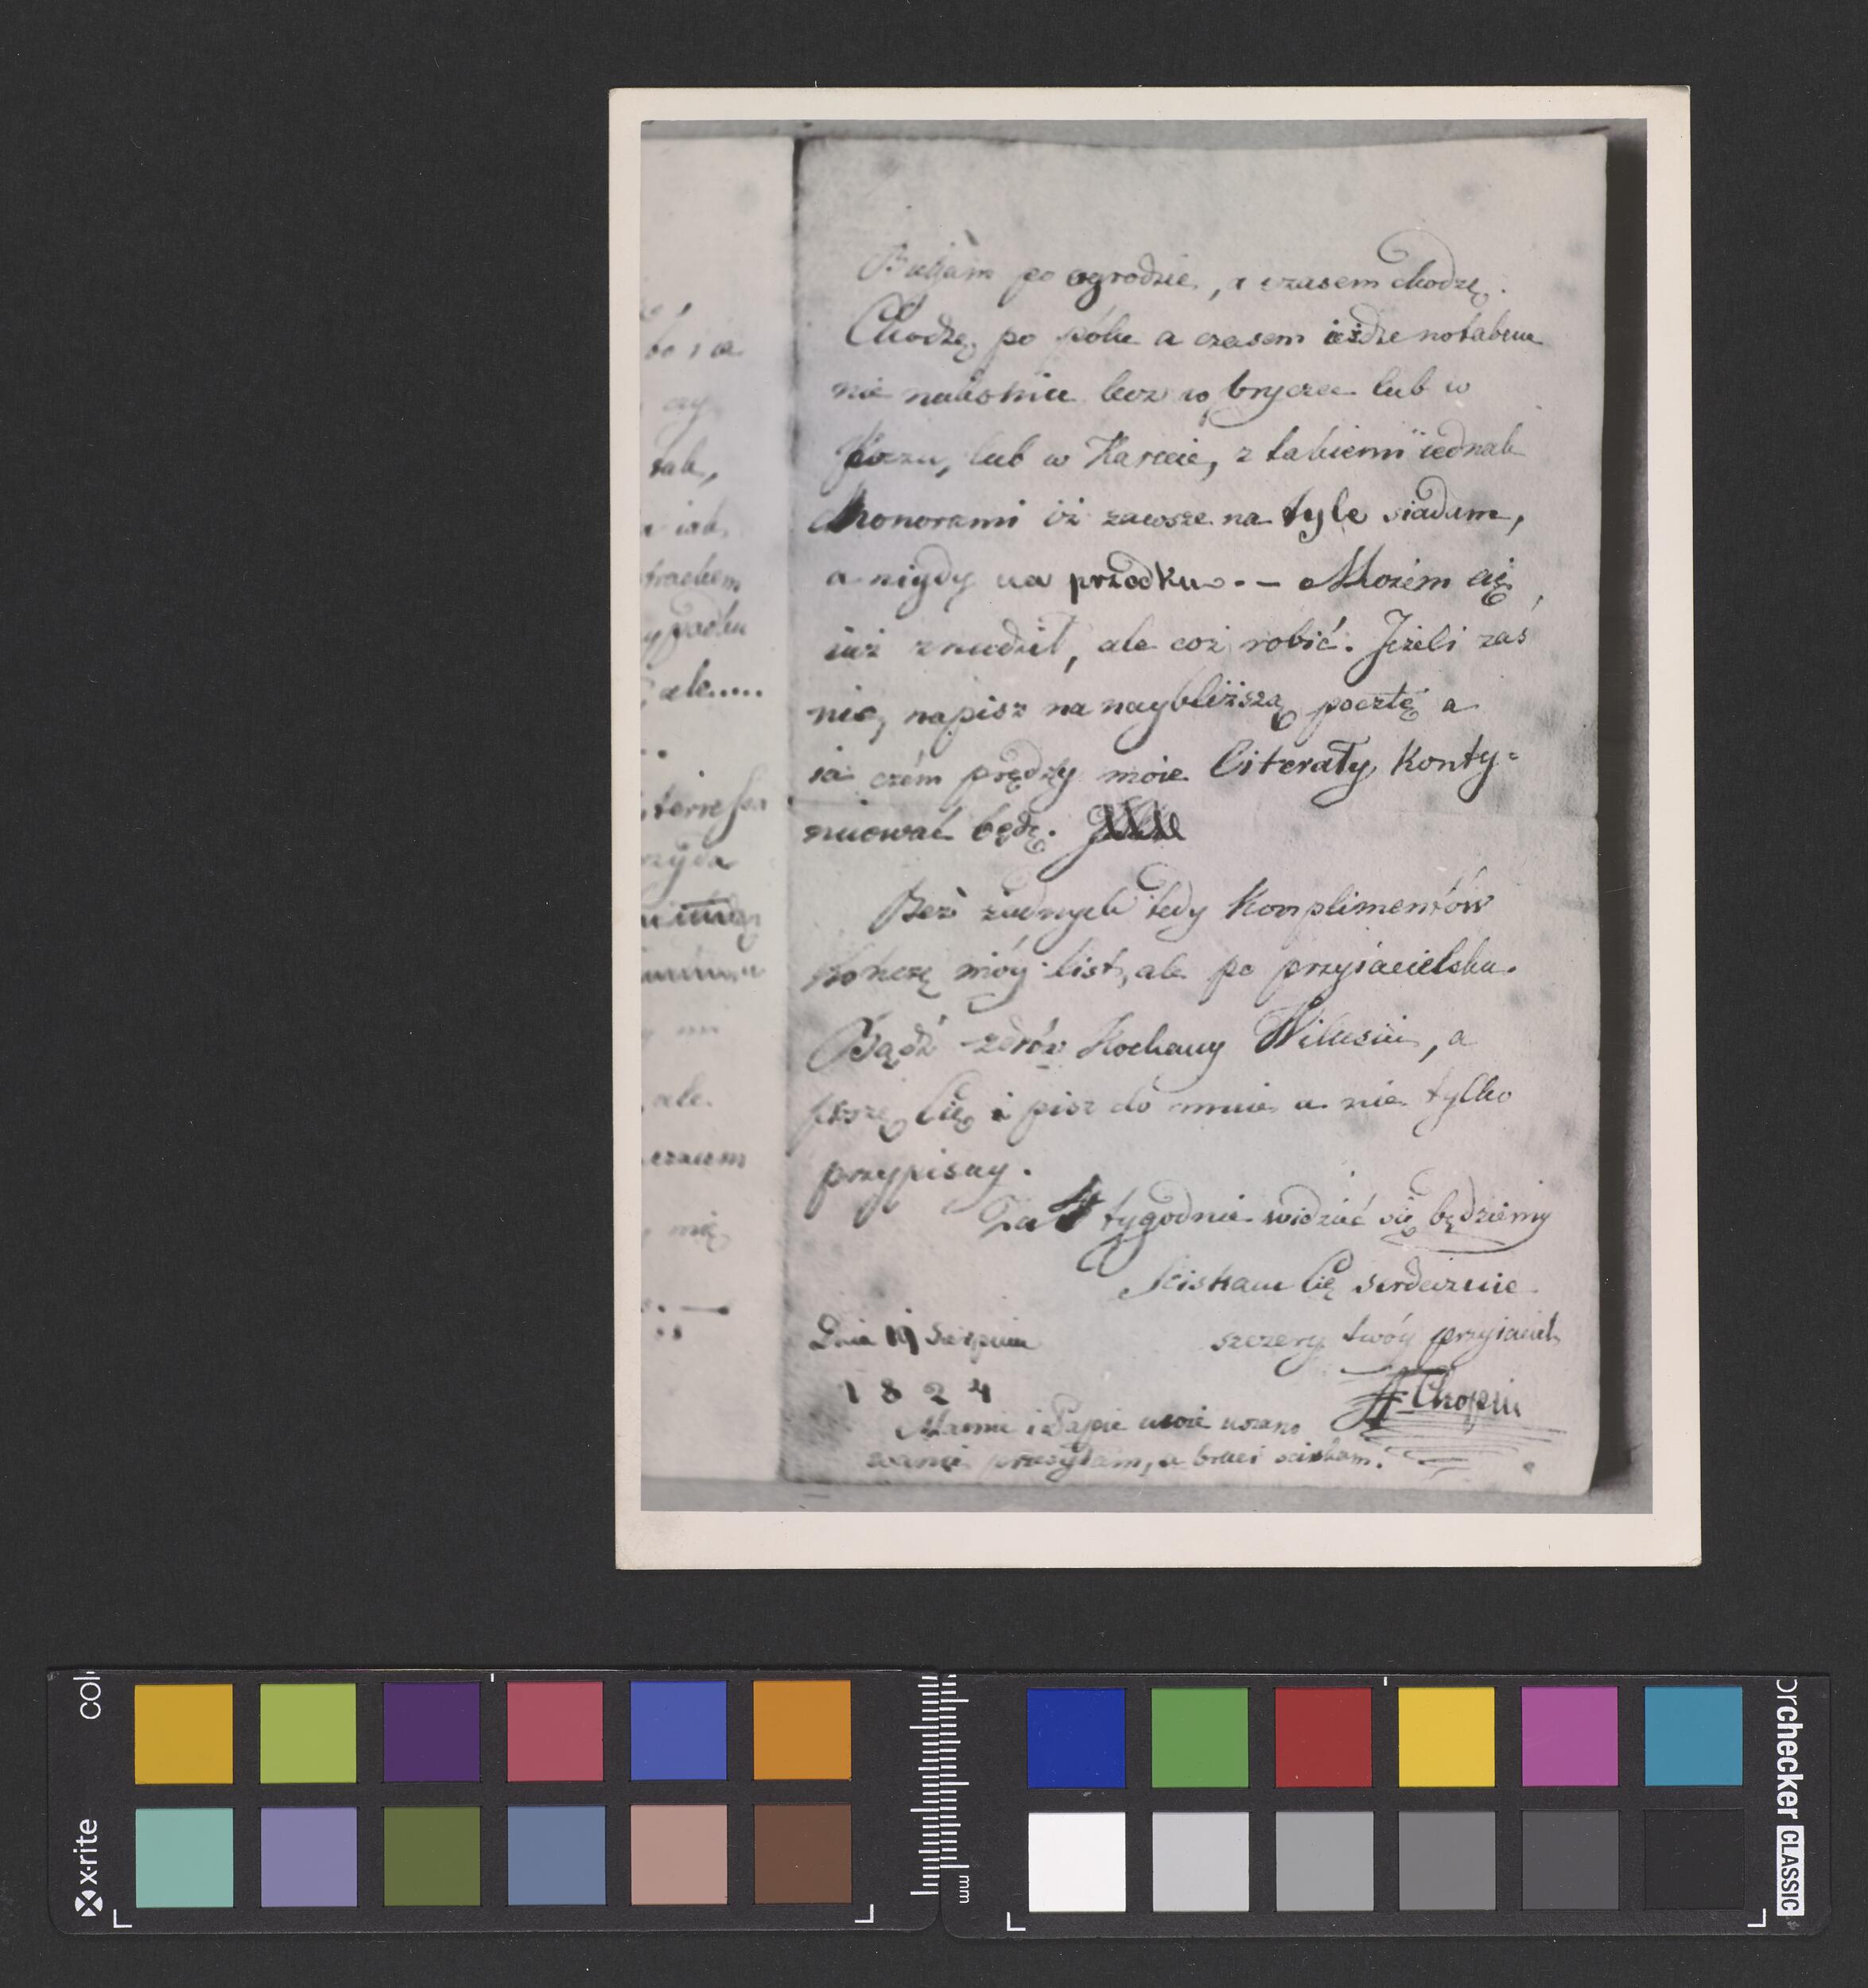 Bujam po ogrodzie, a czasem chodzę.
Chodzę po pólu a czasem ieżdże notabene
nie na koniu lecz w bryczce lub w
Koczu, lub w Karecie, z takiemi iednak
honorami iż zawsze na tyle siadam,
a nigdy na przodku. — Możem cię
iuż znudził, ale coż robić. Jeżeli zaś
nie, napisz na naybliższą pocztę a
ia czém prędzy moie literały konty=
nuować będę.
Bez żadnych tedy komplimentów
kończę móy list, ale po przyiacielsku.
Bądź zdrów Kochany Wilusiu, a
proszę Cię i pisz do mnie a nie tylko
przypisuy.
Za 4 tygodnie widzieć się będziemy
Sciskam Cię serdecznie
szczery twóy przyiaciel
F Chopin
Dnia 19 Sierpnia
1824
Mamie i Papie moie uszano
wanie przesyłam, a braci sciskam.
bo i a
czy
tak,
iak
strachem
ypadku
ale.....
rzyda
ale.
czasem
mię
x-rite
col
mm
orchecker CLASSIC